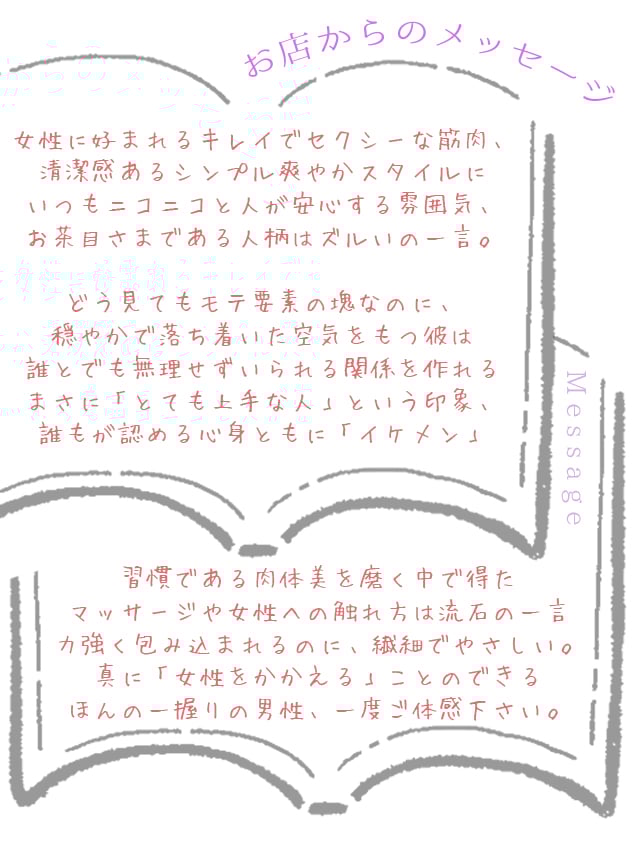 お店からのメッセージ
女性に好まれるキレイでセクシーな筋肉、
清潔感あるシンプル爽やかスタイルに
いつもニコニコと人が安心する雰囲気、
お茶目さまである人柄はズルいの一言。
どう見てもモテ要素の塊なのに、
穏やかで落ち着いた空気をもつ彼は
誰とでも無理せずいられる関係を作れる
まさに「とても上手な人」という印象、
誰もが認める心身ともに「イケメン」
Message
習慣である肉体美を磨く中で得た
マッサージや女性への触れ方は流石の一言
力強く包み込まれるのに、繊細でやさしい。
真に「女性をかかえる」ことのできる
ほんの一握りの男性、一度ご体感下さい。